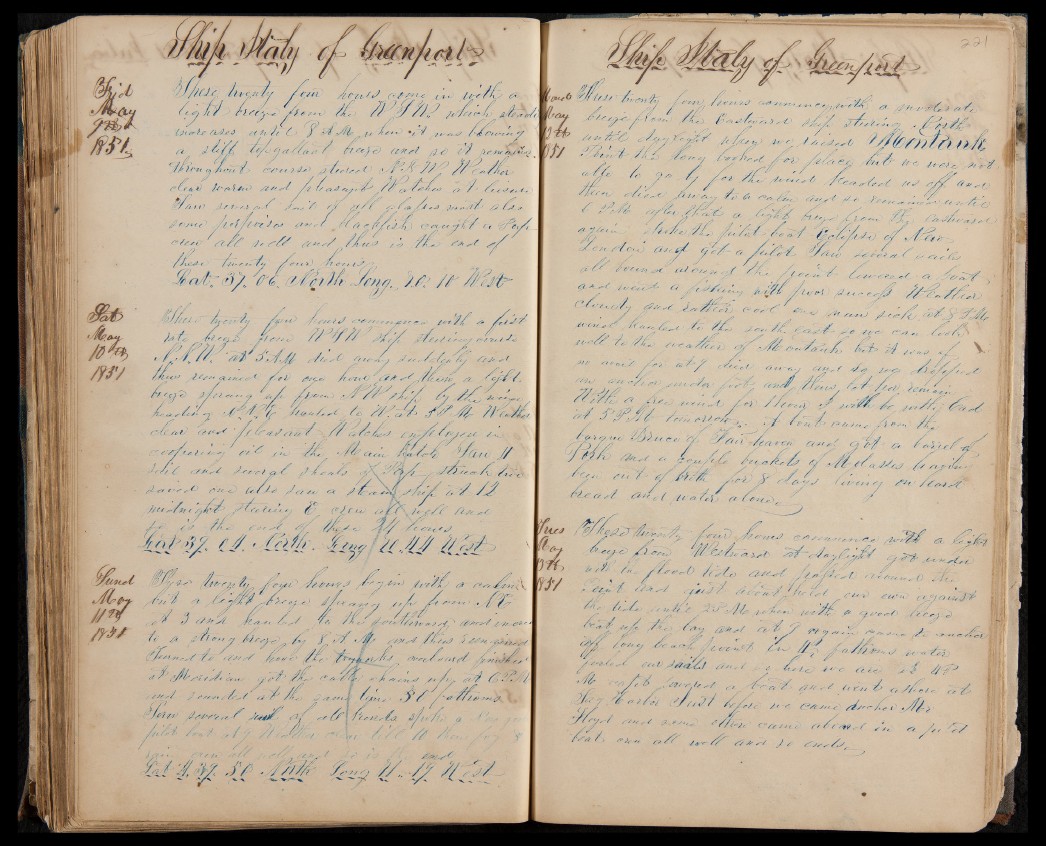 Ship Italy of Greenport
Frid
May
9th
1851
These twenty four hours come in with a
light breeze from the W S W which steadi
increases until 8 A M when it was blowing
a stiff topgallant breeze and so it remained
throughout course steered N & W Weather
clear warm and pleasant Watches at leisure
Saw several sail of all classes most also
some porpoises and blackfish caught a
crew all well and thus is the end of
these twenty four hours
Lat. 37. 06 North Long. 70. 10 West
Sat
May
10th
1851
These twenty four hours commence with a first
rate breeze from W S W ship steering
N.N.W. at 5 A M died away suddenly and
thus remained for one hour and then a light
breeze sprang up from N W ship by the wind
heading N.N.E hauled to W. at 5 P M Weather
clear and pleasant Watches employed in
coopering oil in the Main hatch Saw 11
sail and several shoals of struck two
saved one also saw a steam ship at 12
midnight steering E. crew all well and
so is the end of these 24 hours
Lat 39. 04. North. Long 71.44 West
Sund
May
11th
1851
These twenty four hours begin with a calm
but a light breeze sprang up from N E
at 3 and hauled to the southward and
to a strong breeze by 8 A.M. and thus remained
Turned to and hove the tryworks overboard finished
at Meridian got the cable chains up at 6 P.M
and sounded at the same time 30 fathoms
Saw several sail of all kinds spoke a
pilot boat
rain crew all well and so is the end
Lat 39. 50 North Long 71. 19 West
Ship Italy of Greenport
221
Mond
May
12th
1851
These twenty four hours commence with a moderate
breeze from the Eastward ship steering North
until daylight when we raised Montauk
Point the long looked for place but we were not
able to go by for the wind headed us off and
then died away to a calm and so remained until
1 P M after that a light breeze from the eastward
again Spoke the pilot boat Eclipse of New
London and got a pilot Saw several sails
all bound around the point lowered a boat
and went a fishing with poor success Weather
cloudy and rather cool our men sick at 8 P M
wind hauled to the south east so we can look
well to the weather of Montauk but it was of
no avail for at 9 died away and so we dropped
an anchor under foot and there let her remain
With a free wind for 1 hour I will be with
at 5 P.M. tomorrow. A boat came from the
barque Bruce of Fair haven and got a barrel of
Pork and a couple buckets of Molasses having
been out of both for 8 days living on hard
bread and water alone
Tues
May
13th
1851
These twenty four hours commence with a light
breeze from Westward at daylight got under
way in flood tide and passed around the
Point and just about held our own against
the tide until 2 P M when with a good breeze
beat up the bay and at 7 again came to anchor
off long beach point in 4½ fathoms water
furled our sails and so here we are at 4 P
M captn lowered a boat and went ashore at
Sag harbor Just before we came anchor Mr
Floyd and some others came aboard in a pilot
boat crew all well and so ends